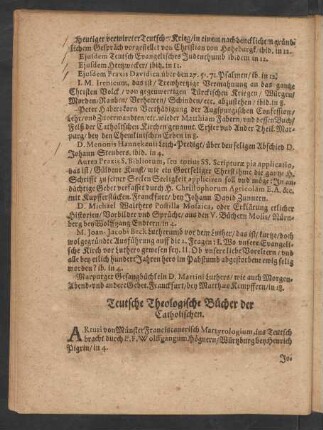 Heutiger verwirreter Teutscher Krieg/ in einem nachdencklichem gründ-
lichem Gespräch vorgestellet von Christian von Hahrburg/ ibid. in 12.
Ejusdem Teutsch Evangelisches Judenthumb ibidem in 12.
Ejusdem Hertzwecker/ ibid. in 12.
Ejusdem Praxis Davidica über den 27. 71. Psalmen/ ib. in 12.
I. M. Irenicum, das ist/ Treuhertzige Vermahnung an das gantze
Christen Volck/ von gegenwertigen Türckischen Kriegen/ Würgen/
Morden/ Rauben/ Verheeren/ Schänden/ etc. abzustehen/ ibid. in 8.
Peter Haberkorn Verthädigung der Augspurgischen Confession/
lehr/ und wieder Matthiam Fabern/ und dessen Buch/
Felß der Catholischen Kirchen genannt. Erster und Ander Theil. Mar-
purg/ bey den Chemelinischen Erben in 8.
D. Menonis Hannekenii Leich-Predigt/ über den seligen Abschied D.
Johann Steubers, ibid. in 4.
Aurea Praxis S. Bibliorum, seu totius SS. Scripturæ pia applicatio,
das ist/ Güldene Kunst/ wie ein Gottseliger Christ/ ihme das gantze H.
Schrifft zu seiner Seelen Seeligkeit appliciren soll und möge/ In an-
dächtige Geber verfasset durch H. Christophorum Agricolam L. B. &c.
mit Kupfferstücken/ Franckfurt/ bey Johann David Zunnern.
D. Michael Walthers Postilla Mosaica, oder Erklärung etlicher
Historien/ Vorbilder und Sprüche/ aus den V. Büchern Mosis/ Nürn-
berg bey Wolffgang Endtern in 4.
M. Joan. Jacobi Beck Lutherus vor dem Luther/ das ist/ kurtze/ doch
wolgegründte Außführung auf die 2. Fragen: I. Wo unsere Evangeli-
sche Kirch vor Luthero gewesen sey. II. Ob unsere liebe Voreltern/ und
alle bey etlich hundert Jahren hero im Pabstumb abgestorbene ewig selig
worden? ib. in 4.
Marpurger Gesangbüchlein D. Martini Luthers/ wie auch Morgen-
Abend- und andere Gebet/ Franckfurt/ bey Matthæo Kempffern/ in 12.
Teutsche Theologische Bücher der
Catholischen.
von Münster Franciscanorisch Martyrologium, ins Teutsch
bracht durch P. F. Wolffgangum Högnern/ Würtzburg bey Henrich
Pigrin/ in 4.
Jo-